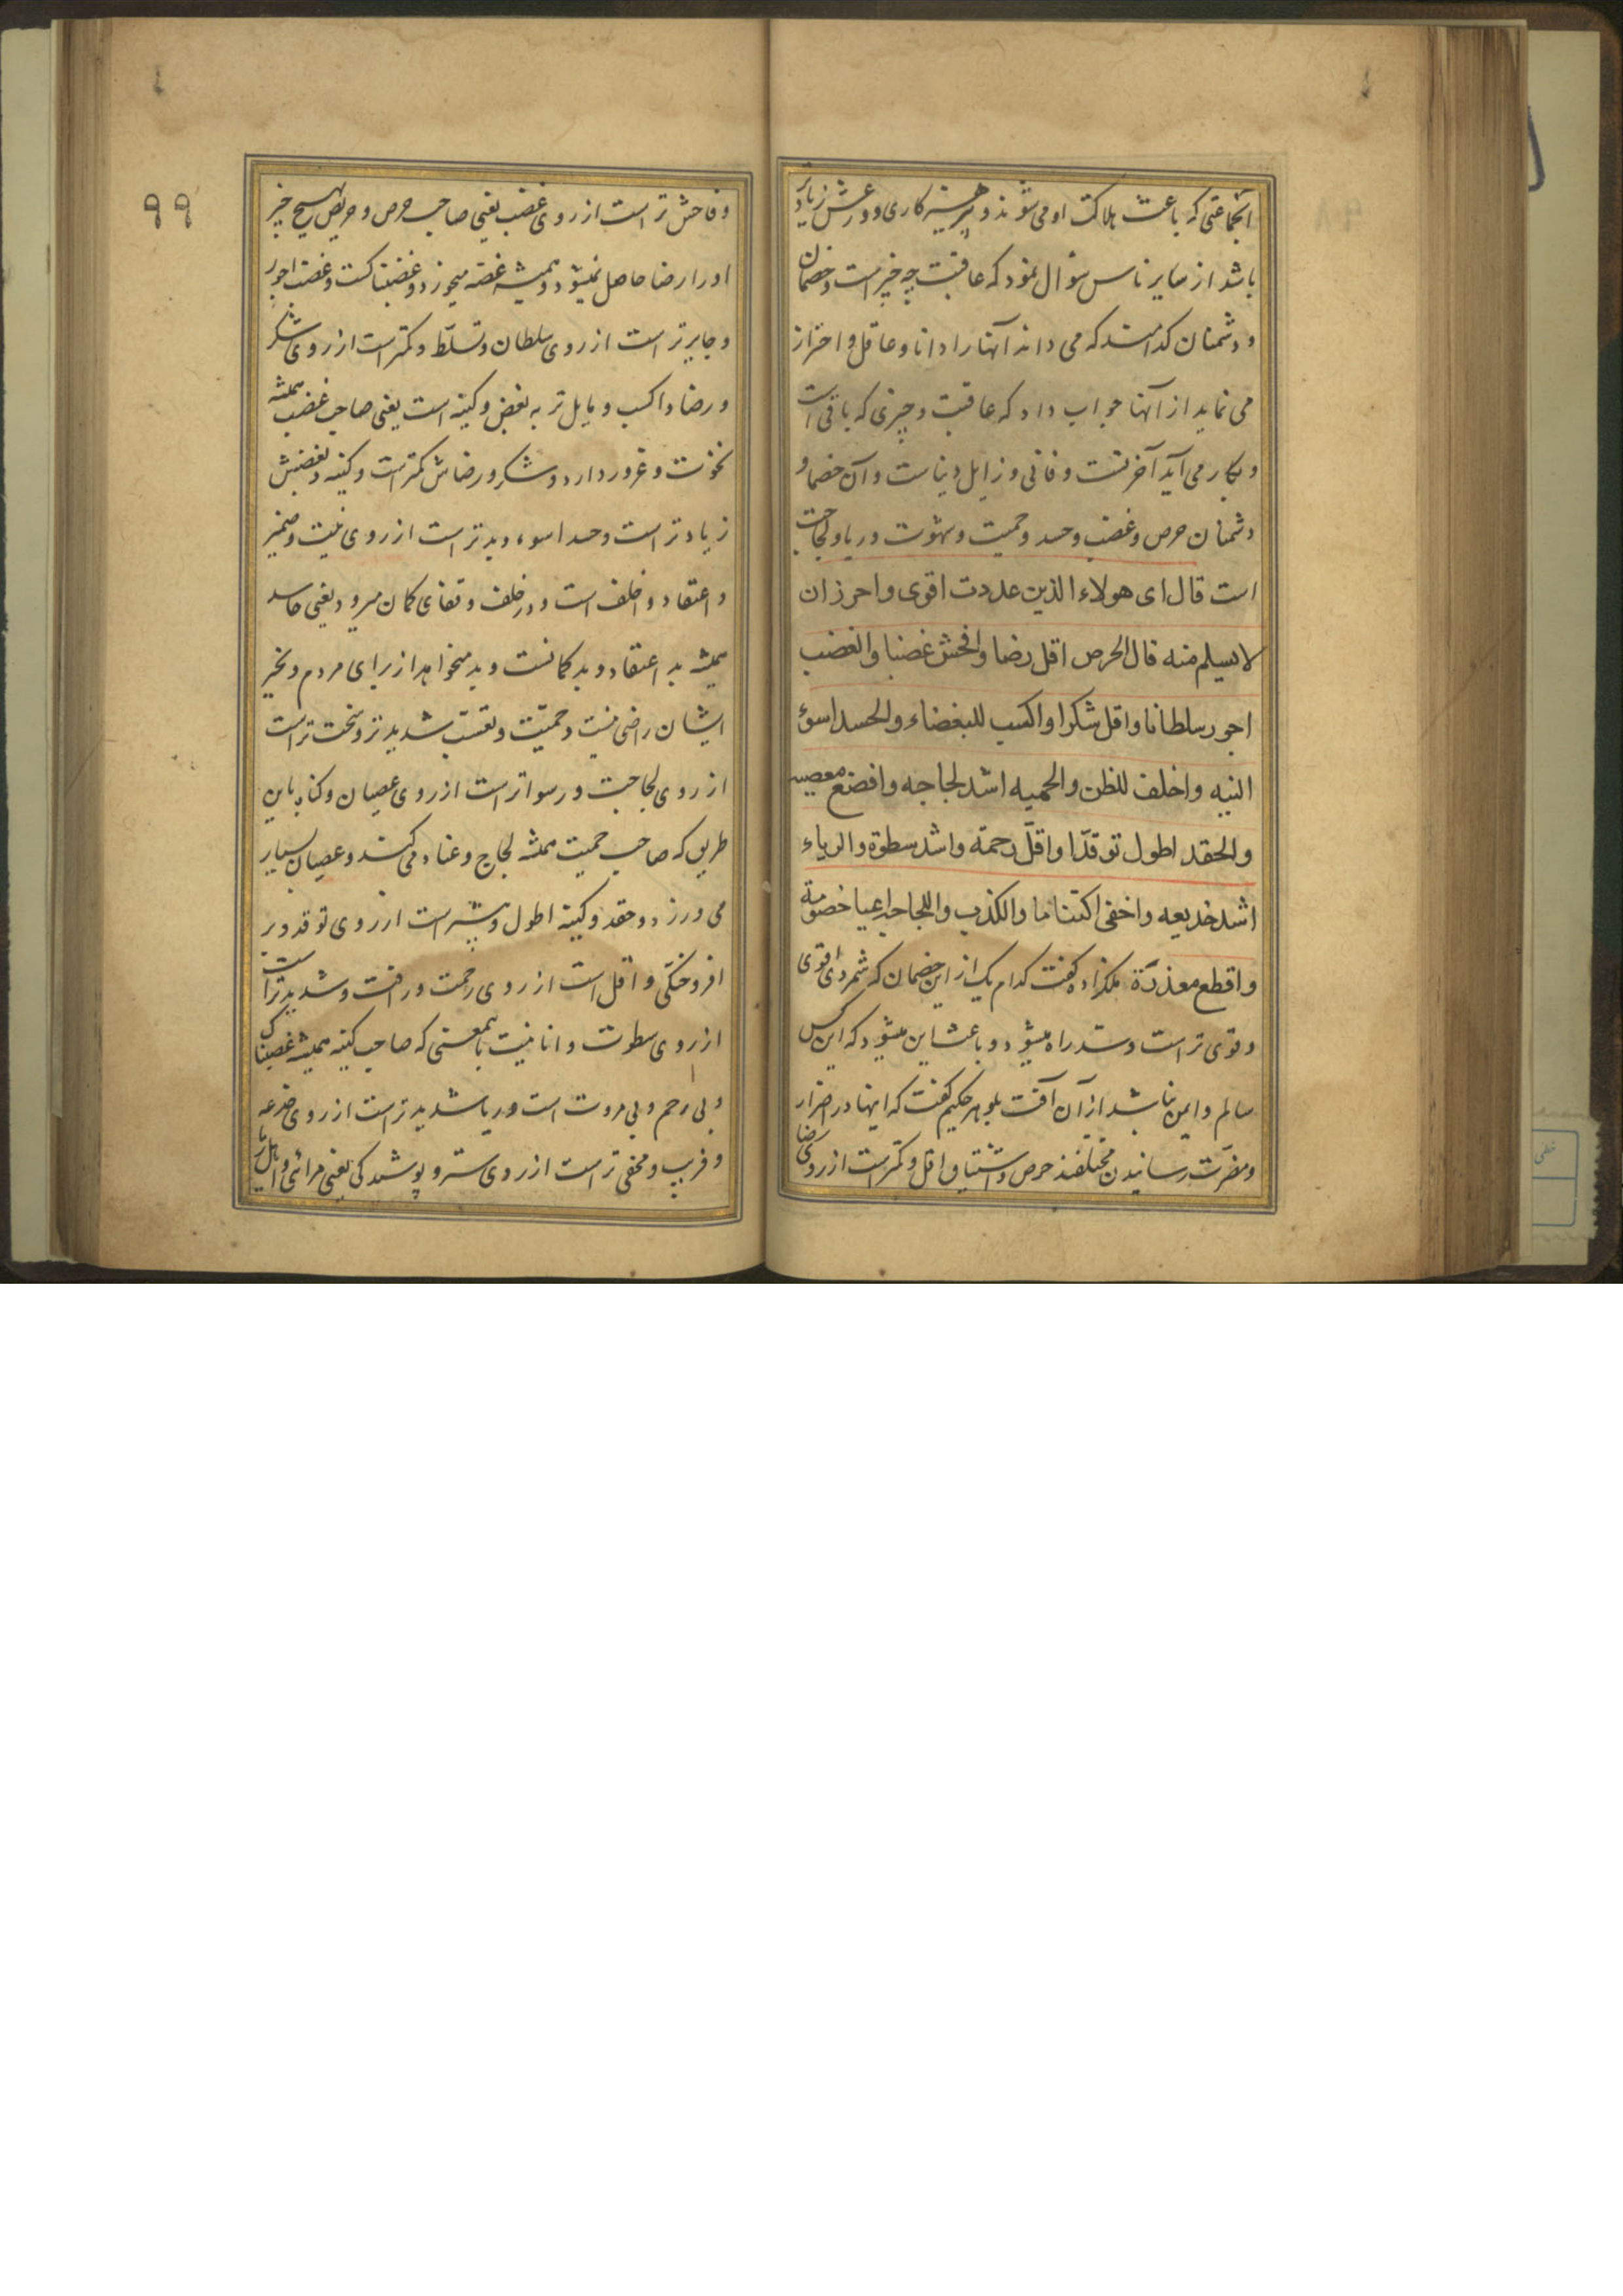 انجماعتی که باعث هلاکت او می شوند و پرهیزکاری و ورعش زیادتر
باشد از سایر ناس سؤال نمود که عاقبت چه چیز است و خصمان
و دشمنان کدامند که می داند آنها را دانا و عاقل و احتراز
می نماید از آنها جواب داد که عاقبت و چیزی که باقی است
و بکار می آید آخرتست و فانی و زایل دنیاست و آن خصما و
دشمنان حرص و غضب و حسد و حمیت و شهوت و ریا و لجاجت
است قال ای هولاء الذین عددت اقوی و احرز ان
لا یسلم منه قال الحرص اقل رضا و افحش غضبا و الغضب
اجور سلطانا و اقل شکرا و اکسب للبغضاء و الحسد اسوء
النیه و اخلف للظن و الحمیه اشد لجاجه و افضع معصیه
و الحقد اطول توقدا و اقلّ رحمة و اشد سطوة و الریاء
اشد خدیعه و اخفی اکتتاما و الکذب و اللجاجه اعیا خصومة
و اقطع معذرة ملکزاده گفت کدام یک از این خصمان که شمردی اقوی
و قوی تر است و سد راه میشود و باعث این میشود که این کس
سالم و ایمن نباشد از آن آفت بلوهر حکیم گفت که اینها در اضرار
و مضرّت رسانیدن مختلفند حرص و اشتیاق اقل و کمتر است از روی رضا
۹۹
و فاحش تر است از روی غضب یعنی صاحب حرص و حریص بهیچ چیز
او را رضا حاصل نمیشود و همیشه غصه میخورد و غضبناکست و غضب اجور
و جایرتر است از روی سلطان و تسلّط و کمتر است از روی شکر
و رضا و اکسب و مایل تر به بغض و کینه است یعنی صاحب غضب همیشه
نخوت و غرور دارد و شکر و رضاش کمتر است و کینه و بغضش
زیادتر است و حسد اسوء و بدتر است از روی نیت و ضمیر
و اعتقاد و اخلف است و در خلف و قفای گمان میرود یعنی حاسد
همیشه بد اعتقاد و بد گمانست و بد میخواهد از برای مردم و بخیر
ایشان راضی نیست و حمیّت و تعصّب شدیدتر و سخت تر است
از روی لجاجت و رسواتر است از روی عصیان و گناه باین
طریق که صاحب حمیت همیشه لجاج و عناد می کند و عصیان بسیار
می ورزد و حقد و کینه اطول و بیشتر است از روی توقد و بر
افروختگی و اقل است از روی رحمت و رافت و شدیدتر است
از روی سطوت و انانیت بآنمعنی که صاحب کینه همیشه غضبناک
و بی رحم و بی مروت است و ریا شدیدتر است از روی خدعه
و فریب و مخفی تر است از روی ستر و پوشیدگی یعنی مرائی و اهل ریا